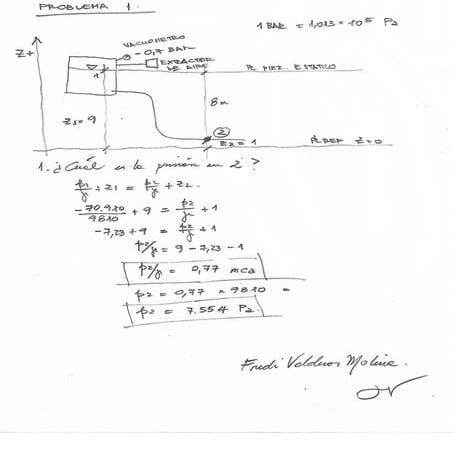 PROBLEMA 1.
1 BAR = 1,013 × 10⁵ Pa
Z+
VACUOMETRO
-0,7 BAR
EXTRACTOR
DE AIRE
PL PIEZ. ESTATICO
1
Z1 = 9
8m
2
Z2 = 1
PL REF Z=0
1. ¿Cuál es la presión en 2?
p1/γ + Z1 = p2/γ + Z2.
-70.910/9810 + 9 = p2/γ + 1
-7,23 + 9 = p2/γ + 1
p2/γ = 9 - 7,23 - 1
p2/γ = 0,77 mca
p2 = 0,77 × 9810 =
p2 = 7.554 Pa.
Fredi Valderas Molina.